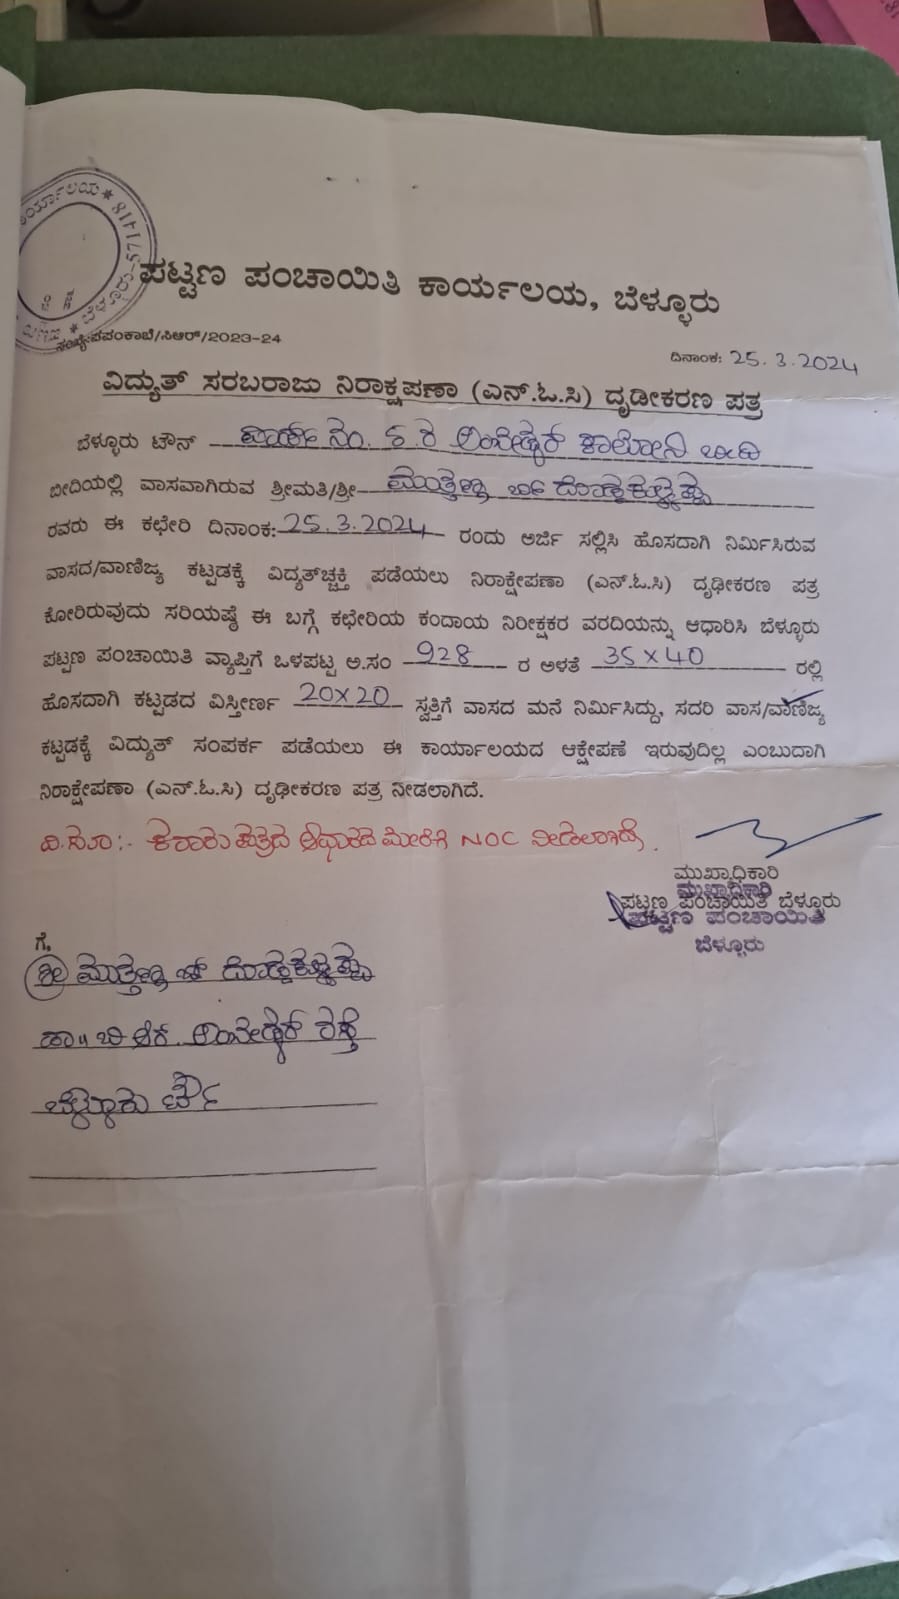 ಕಾರ್ಯಾಲಯ * ಬೆಳ್ಳೂರು-571418 *
ಪಟ್ಟಣ ಪಂಚಾಯಿತಿ ಕಾರ್ಯಾಲಯ, ಬೆಳ್ಳೂರು
ಸಂಖ್ಯೆ:ಪಪಂಕಾಬೆ/ಸಿಆರ್/2023-24
ದಿನಾಂಕ: 25.3.2024
ವಿದ್ಯುತ್ ಸರಬರಾಜು ನಿರಾಕ್ಷಪಣಾ (ಎನ್.ಓ.ಸಿ) ದೃಢೀಕರಣ ಪತ್ರ
ಬೆಳ್ಳೂರು ಟೌನ್ ವಾರ್ಡ್ ನಂ. 5 ರ ಅಂಬೇಡ್ಕರ್ ಕಾಲೋನಿ
ಬೀದಿಯಲ್ಲಿ ವಾಸವಾಗಿರುವ ಶ್ರೀಮತಿ/ಶ್ರೀ
ರವರು ಈ ಕಛೇರಿ ದಿನಾಂಕ: 25.3.2024 ರಂದು ಅರ್ಜಿ ಸಲ್ಲಿಸಿ ಹೊಸದಾಗಿ ನಿರ್ಮಿಸಿರುವ
ವಾಸದ/ವಾಣಿಜ್ಯ ಕಟ್ಟಡಕ್ಕೆ ವಿದ್ಯತ್‌ಚ್ಛಕ್ತಿ ಪಡೆಯಲು ನಿರಾಕ್ಷೇಪಣಾ (ಎನ್.ಓ.ಸಿ) ದೃಢೀಕರಣ ಪತ್ರ
ಕೋರಿರುವುದು ಸರಿಯಷ್ಠೆ ಈ ಬಗ್ಗೆ ಕಛೇರಿಯ ಕಂದಾಯ ನಿರೀಕ್ಷಕರ ವರದಿಯನ್ನು ಆಧಾರಿಸಿ ಬೆಳ್ಳೂರು
ಪಟ್ಟಣ ಪಂಚಾಯಿತಿ ವ್ಯಾಪ್ತಿಗೆ ಒಳಪಟ್ಟ ಅ.ಸಂ 928 ರ ಅಳತೆ 35 x 40 ರಲ್ಲಿ
ಹೊಸದಾಗಿ ಕಟ್ಟಡದ ವಿಸ್ತೀರ್ಣ 20 x 20 ಸ್ವತ್ತಿಗೆ ವಾಸದ ಮನೆ ನಿರ್ಮಿಸಿದ್ದು, ಸದರಿ ವಾಸ/ವಾಣಿಜ್ಯ
ಕಟ್ಟಡಕ್ಕೆ ವಿದ್ಯುತ್ ಸಂಪರ್ಕ ಪಡೆಯಲು ಈ ಕಾರ್ಯಾಲಯದ ಆಕ್ಷೇಪಣೆ ಇರುವುದಿಲ್ಲ ಎಂಬುದಾಗಿ
ನಿರಾಕ್ಷೇಪಣಾ (ಎನ್.ಓ.ಸಿ) ದೃಢೀಕರಣ ಪತ್ರ ನೀಡಲಾಗಿದೆ.
ವಿ.ಸೂ:- ಕರಾರು ಪತ್ರದ ಆಧಾರದ ಮೇರೆಗೆ NOC ನೀಡಲಾಗಿದೆ.
ಮುಖ್ಯಾಧಿಕಾರಿ
ಮುಖ್ಯಾಧಿಕಾರಿ
ಪಟ್ಟಣ ಪಂಚಾಯಿತಿ ಬೆಳ್ಳೂರು
ಪಟ್ಟಣ ಪಂಚಾಯಿತಿ
ಬೆಳ್ಳೂರು
ಗೆ,
ಶ್ರೀ
ಅಂಬೇಡ್ಕರ್ ರಸ್ತೆ
ಬೆಳ್ಳೂರು ಟೌನ್